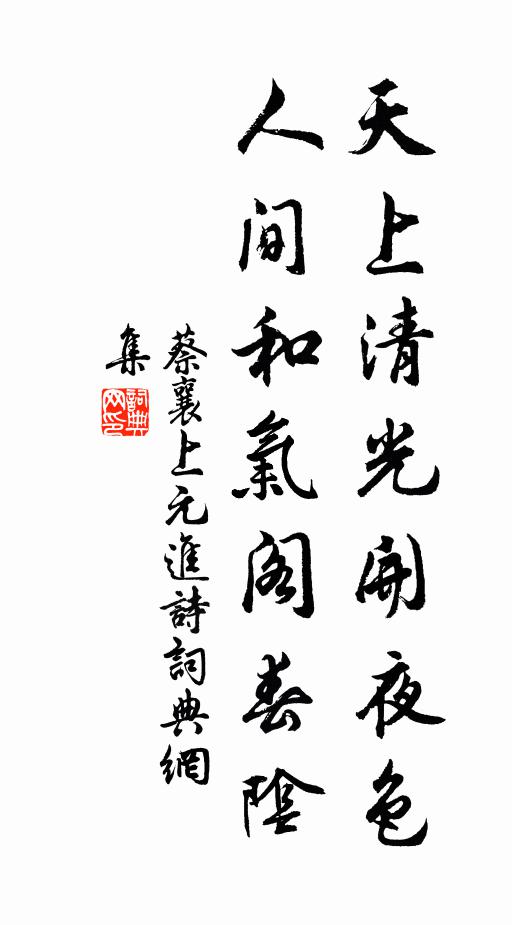 天上清光開夜色
人间和氣阁春陰
蔡襄上元進詩詞典網
集
詞典
网印